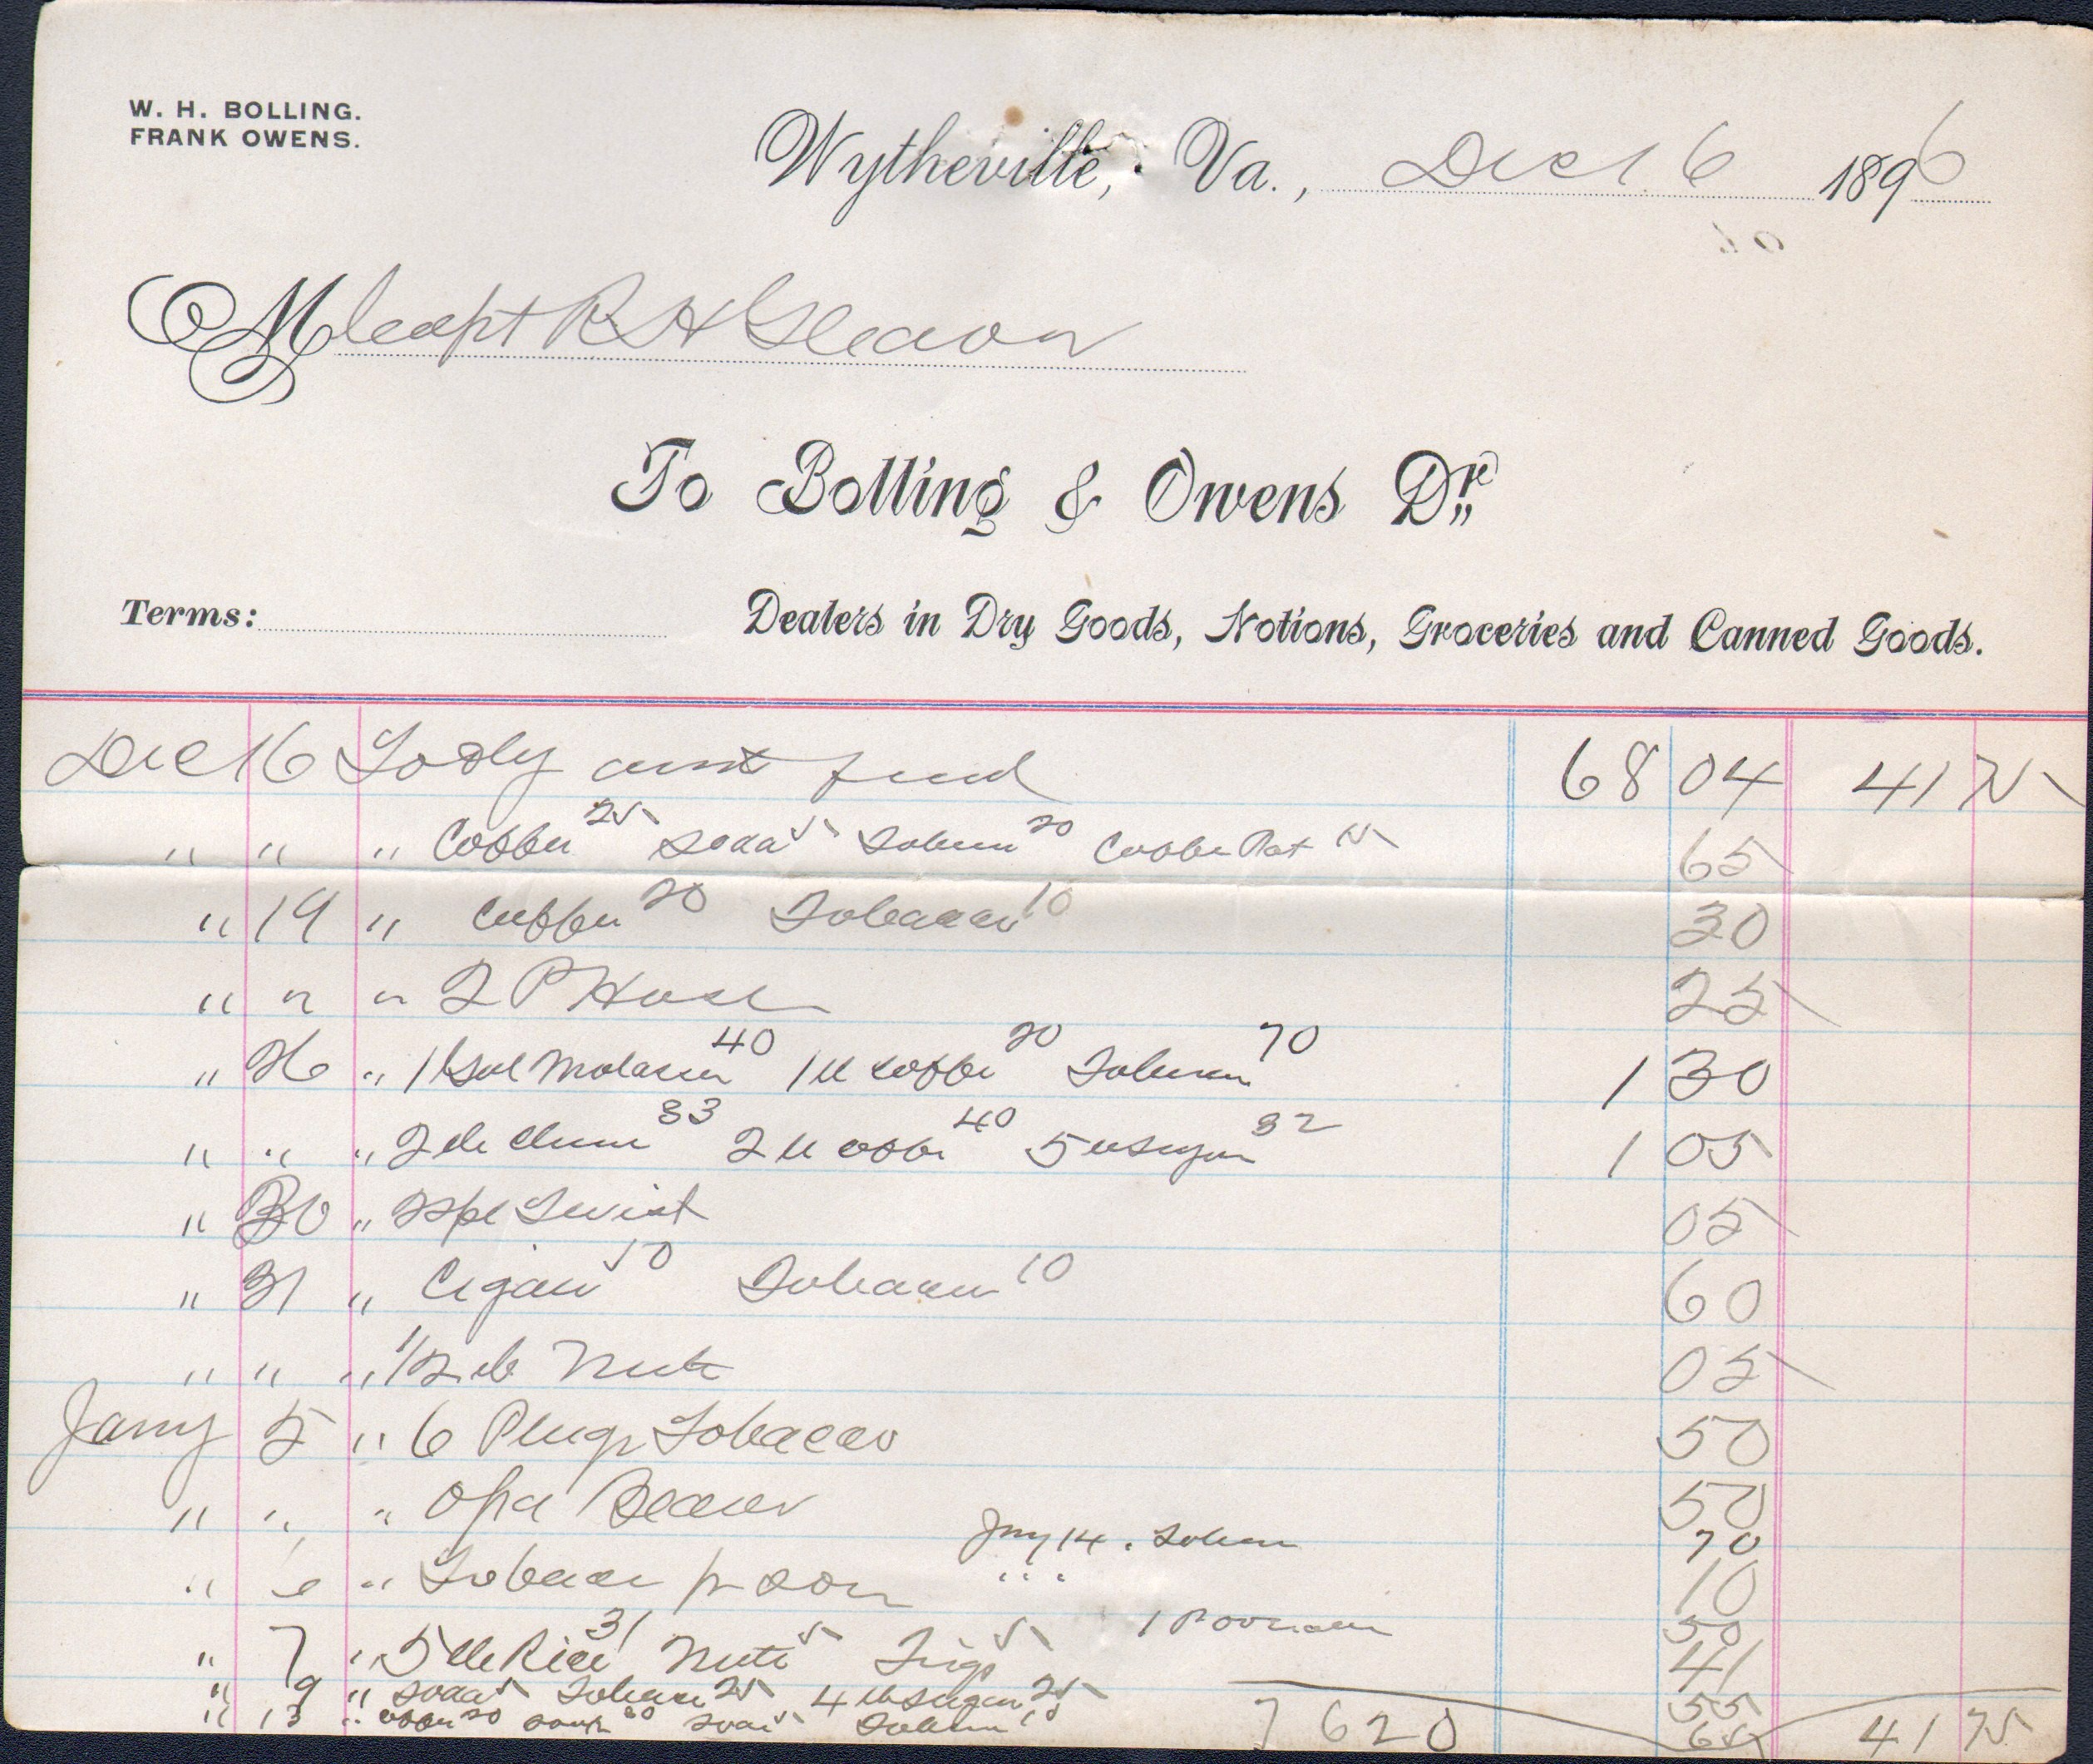 W. H. BOLLING.
FRANK OWENS.
Wytheville, Va., Dec 16 1896
M Capt R H Gleaves
To Bolling & Owens Dr.
Terms: Dealers in Dry Goods, Notions, Groceries and Canned Goods.
Dec 16 To 68 04 41 75
" " " Coffee 25 Soda 5 Tobacco 20 Coffee Pot 15 65
" 19 " Coffee 20 Tobacco 10 30
" " " 2 P Hose 25
" 26 " 1 Gal Molasses 40 1 lb Coffee 20 Tobacco 70 1 30
" " " 2 lb 33 2 lb Coffee 40 5 lb Sugar 32 1 05
" 30 " Twist 05
" 31 " Cigars 50 Tobacco 10 60
" " " 1/2 lb Nuts 05
Jany 5 " 6 Plugs Tobacco 50
" " " 50
Jny 14 . Tobacco 70
" 6 " Tobacco pr son " " " 10
1 50
" 7 " 5 lb Rice 31 Nuts 5 Figs 5 41
" 9 " Soda 5 Tobacco 25 4 lb Sugar 25 55
" 13 " Coffee 20 Soap 20 Soda 5 Tobacco 65
76 20 41 75